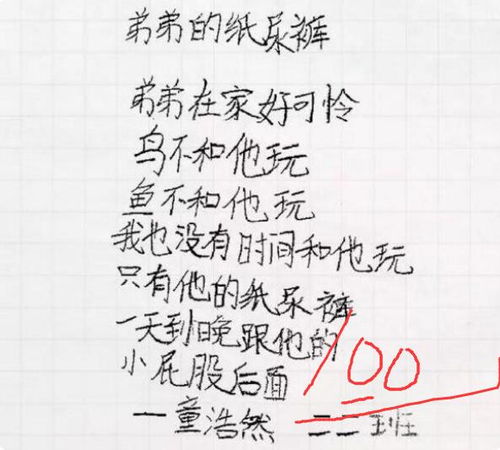 弟弟的纸尿裤
弟弟在家好可怜
鸟不和他玩
鱼不和他玩
我也没有时间和他玩
只有他的纸尿裤
一天到晚跟他的
小屁股后面
一童浩然 二二班
100